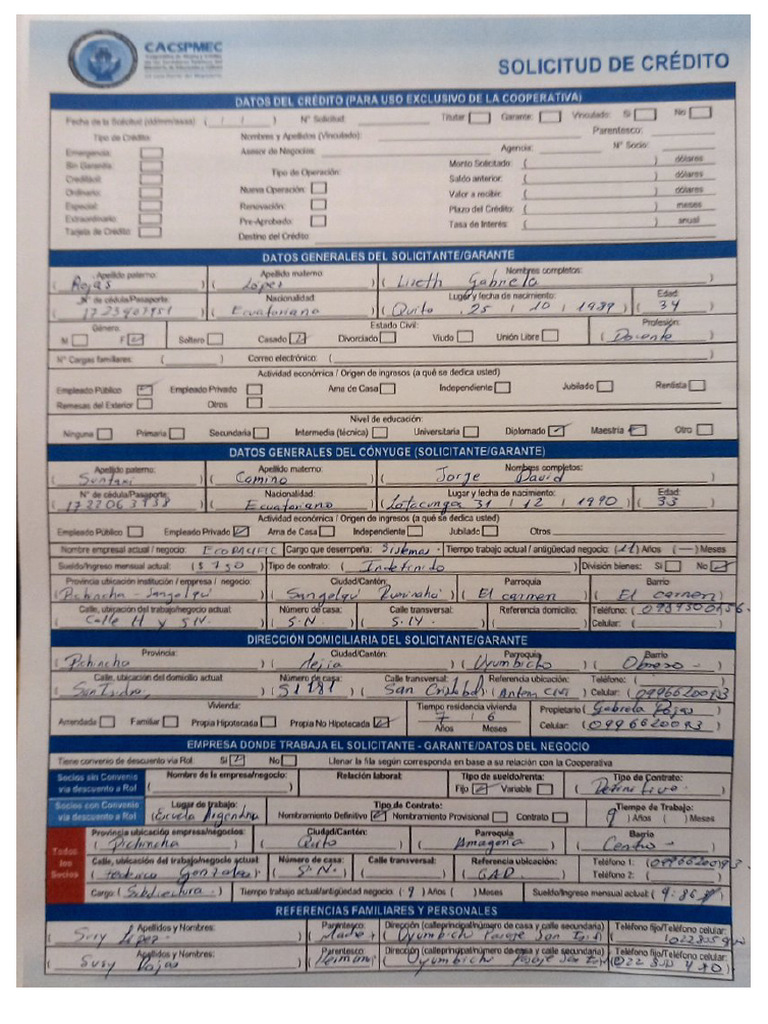 CACSPMEC
SOLICITUD DE CRÉDITO
DATOS DEL CRÉDITO (PARA USO EXCLUSIVO DE LA COOPERATIVA)
Fecha de la Solicitud (dd/mm/aaaa) ( / / ) N° Solicitud: Titular Garante: Vinculado: Si No
Tipo de Crédito: Nombres y Apellidos (Vinculado): Parentesco:
Emergencia: Asesor de Negocios: Agencia: N° Socio:
Sin Garantía: Tipo de Operación: Monto Solicitado: ( ) dólares
Credifácil: Saldo anterior: ( ) dólares
Ordinario: Nueva Operación: Valor a recibir: ( ) dólares
Especial: Renovación: Plazo del Crédito: ( ) meses
Extraordinario: Pre-Aprobado: Tasa de Interés: ( ) anual
Tarjeta de Crédito: Destino del Crédito:
DATOS GENERALES DEL SOLICITANTE/GARANTE
Apellido paterno: Apellido materno: Nombres completos:
( Rojas ) ( López ) ( Liseth Gabriela )
N° de cédula/Pasaporte: Nacionalidad: Lugar y fecha de nacimiento: Edad:
( 1723907951 ) ( Ecuatoriano ) ( Quito 25 / 10 / 1989 ) ( 34 )
Género: Estado Civil: Profesión:
M F Soltero Casado Divorciado Viudo Unión Libre ( Docente )
N° Cargas familiares: ( ) Correo electrónico: ( )
Actividad económica / Origen de ingresos (a qué se dedica usted)
Empleado Público Empleado Privado Ama de Casa Independiente Jubilado Rentista
Remesas del Exterior Otros
Nivel de educación:
Ninguna Primaria Secundaria Intermedia (técnica) Universitaria Diplomado Maestría Otro
DATOS GENERALES DEL CÓNYUGE (SOLICITANTE/GARANTE)
Apellido paterno: Apellido materno: Nombres completos:
( Suntaxi ) ( Camino ) ( Jorge David )
N° de cédula/Pasaporte: Nacionalidad: Lugar y fecha de nacimiento: Edad:
( 1722063938 ) ( Ecuatoriano ) ( Latacunga 31 / 12 / 1990 ) ( 33 )
Actividad económica / Origen de ingresos (a qué se dedica usted)
Empleado Público Empleado Privado Ama de Casa Independiente Jubilado Otros
Nombre empresa actual / negocio: ECOPACIFIC Cargo que desempeña: Sistemas Tiempo trabajo actual / antigüedad negocio: (11) Años (—) Meses
Sueldo/Ingreso mensual actual: ($ 750 ) Tipo de contrato: ( Indefinido ) División bienes: Si No
Provincia ubicación institución / empresa / negocio: Ciudad/Cantón: Parroquia Barrio
( Pichincha - Sangolquí ) ( Sangolquí Rumiñahui ) ( El carmen ) ( El carmen )
Calle, ubicación del trabajo/negocio actual: Número de casa: Calle transversal: Referencia domicilio: Teléfono:
( Calle H y S/N ) ( S.N. ) ( S.N ) ( ) Celular: ( )
DIRECCIÓN DOMICILIARIA DEL SOLICITANTE/GARANTE
Provincia: Ciudad/Cantón: Parroquia Barrio
( Pichincha ) ( Mejía ) ( Uyumbicho ) ( Obrero - )
Calle, ubicación del domicilio actual Número de casa: Calle transversal: Referencia ubicación: Teléfono: ( )
( San Isidro, ) ( ) ( San Cristobal ) ( ) Celular: ( 0996620093 )
Vivienda: Tiempo residencia vivienda Propietario ( Gabriela Rojas )
Arrendada Familiar Propia Hipotecada Propia No Hipotecada 7 / 6 Años Meses Celular: ( 0996620093 )
EMPRESA DONDE TRABAJA EL SOLICITANTE - GARANTE/DATOS DEL NEGOCIO
Tiene convenio de descuento vía Rol: Si No Llenar la fila según corresponda en base a su relación con la Cooperativa
Socios sin Convenio vía descuento a Rol Nombre de la empresa/negocio: Relación laboral: Tipo de sueldo/renta: Fijo Variable Tipo de Contrato: ( Definitivo )
Socios con Convenio vía descuento a Rol Lugar de trabajo: ( Escuela Argentina ) Tipo de Contrato: Nombramiento Definitivo Nombramiento Provisional Contrato Tiempo de Trabajo: 9 ) Años ( ) Meses
Todos los Socios
Provincia ubicación empresa/negocios: Ciudad/Cantón: Parroquia Barrio
( Pichincha ) ( Quito ) ( Amagena ) ( Centro - )
Calle, ubicación del trabajo/negocio actual Número de casa: Calle transversal: Referencia ubicación: Teléfono 1: (0996620093
( Federico Gonzales ) ( S.N. ) ( ) ( GAD ) Teléfono 2: ( )
Cargo ( Subdirectora ) Tiempo trabajo actual/antigüedad negocio: ( 9 ) Años ( ) Meses Sueldo/Ingreso mensual actual: ( )
REFERENCIAS FAMILIARES Y PERSONALES
Apellidos y Nombres: Parentesco: Dirección (calleprincipal/número de casa y calle secundaria) Teléfono fijo/Teléfono celular:
( Susy López ) ( Madre ) ( Uyumbicho Pasaje San Isid )
Apellidos y Nombres: Parentesco Dirección (calleprincipal/número de casa y calle secundaria) Teléfono fijo/Teléfono celular:
( Susy Rojas ) ( Hermana ) ( Uyumbicho Pasaje San )